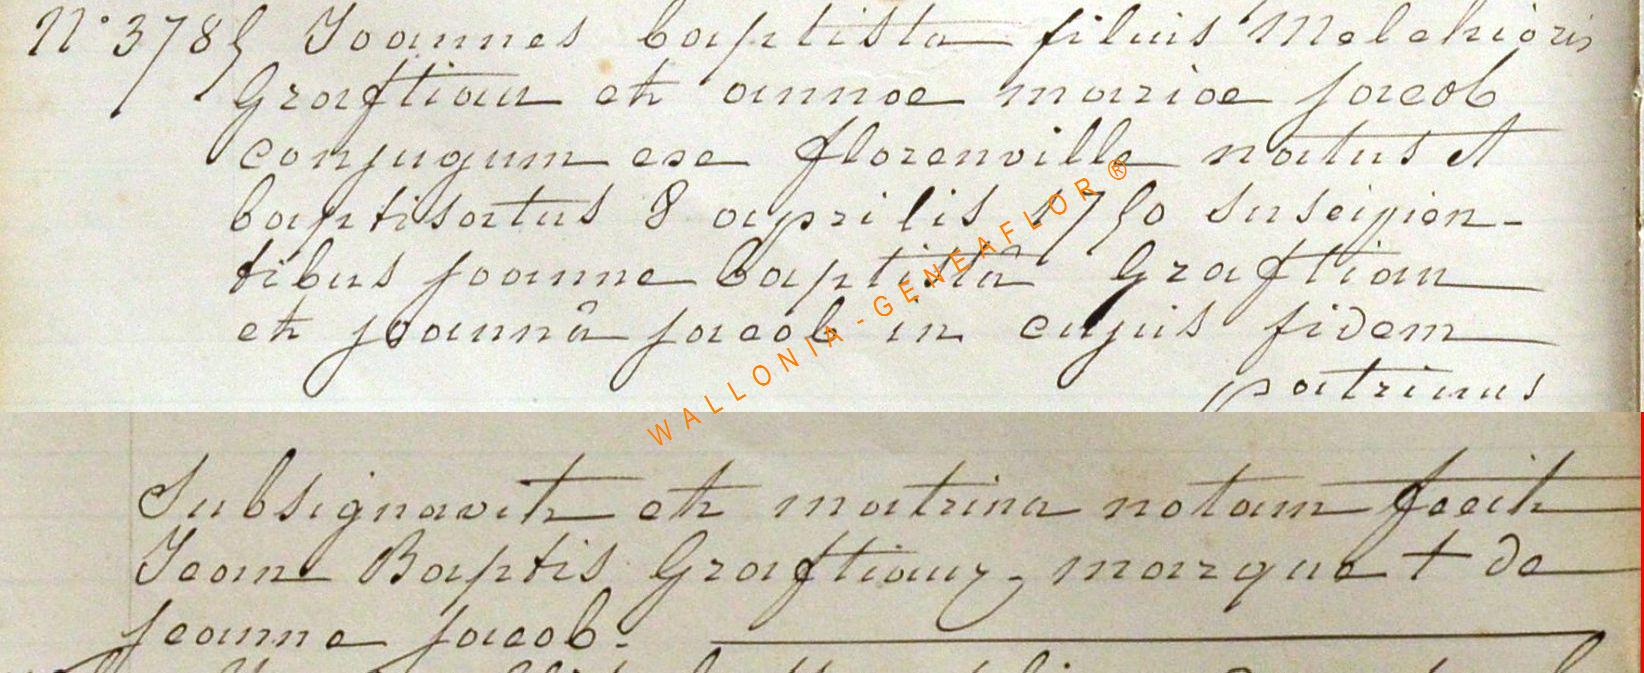 N° 3785 Joannes baptista filius Melchioris
Graftiau et annae mariae jacob
conjugum exe florenville natus et
baptisatus 8 aprilis 1750 suscipien-
tibus joanne baptistâ Graftiau
et joannâ jacob in cujus fidem
patrinus
WALLONIA-GENEAFLOR®
Subsignavit et matrina notam fecit
Jean Baptis Graftiaux, marque + de
jeanne jacob.